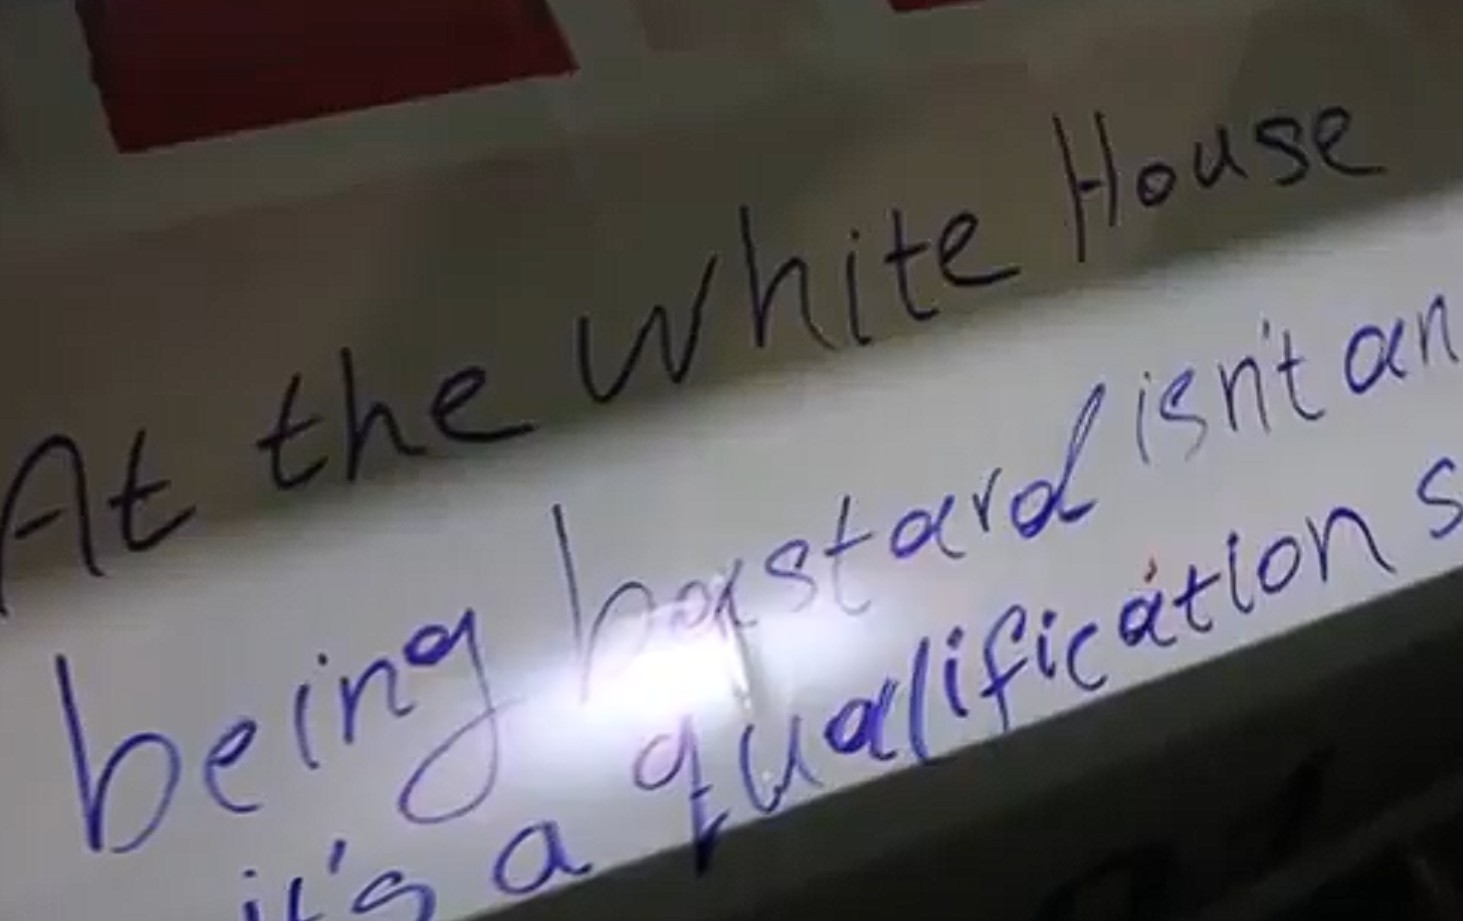 At the White House
being bastard isn't an
it's a qualification s